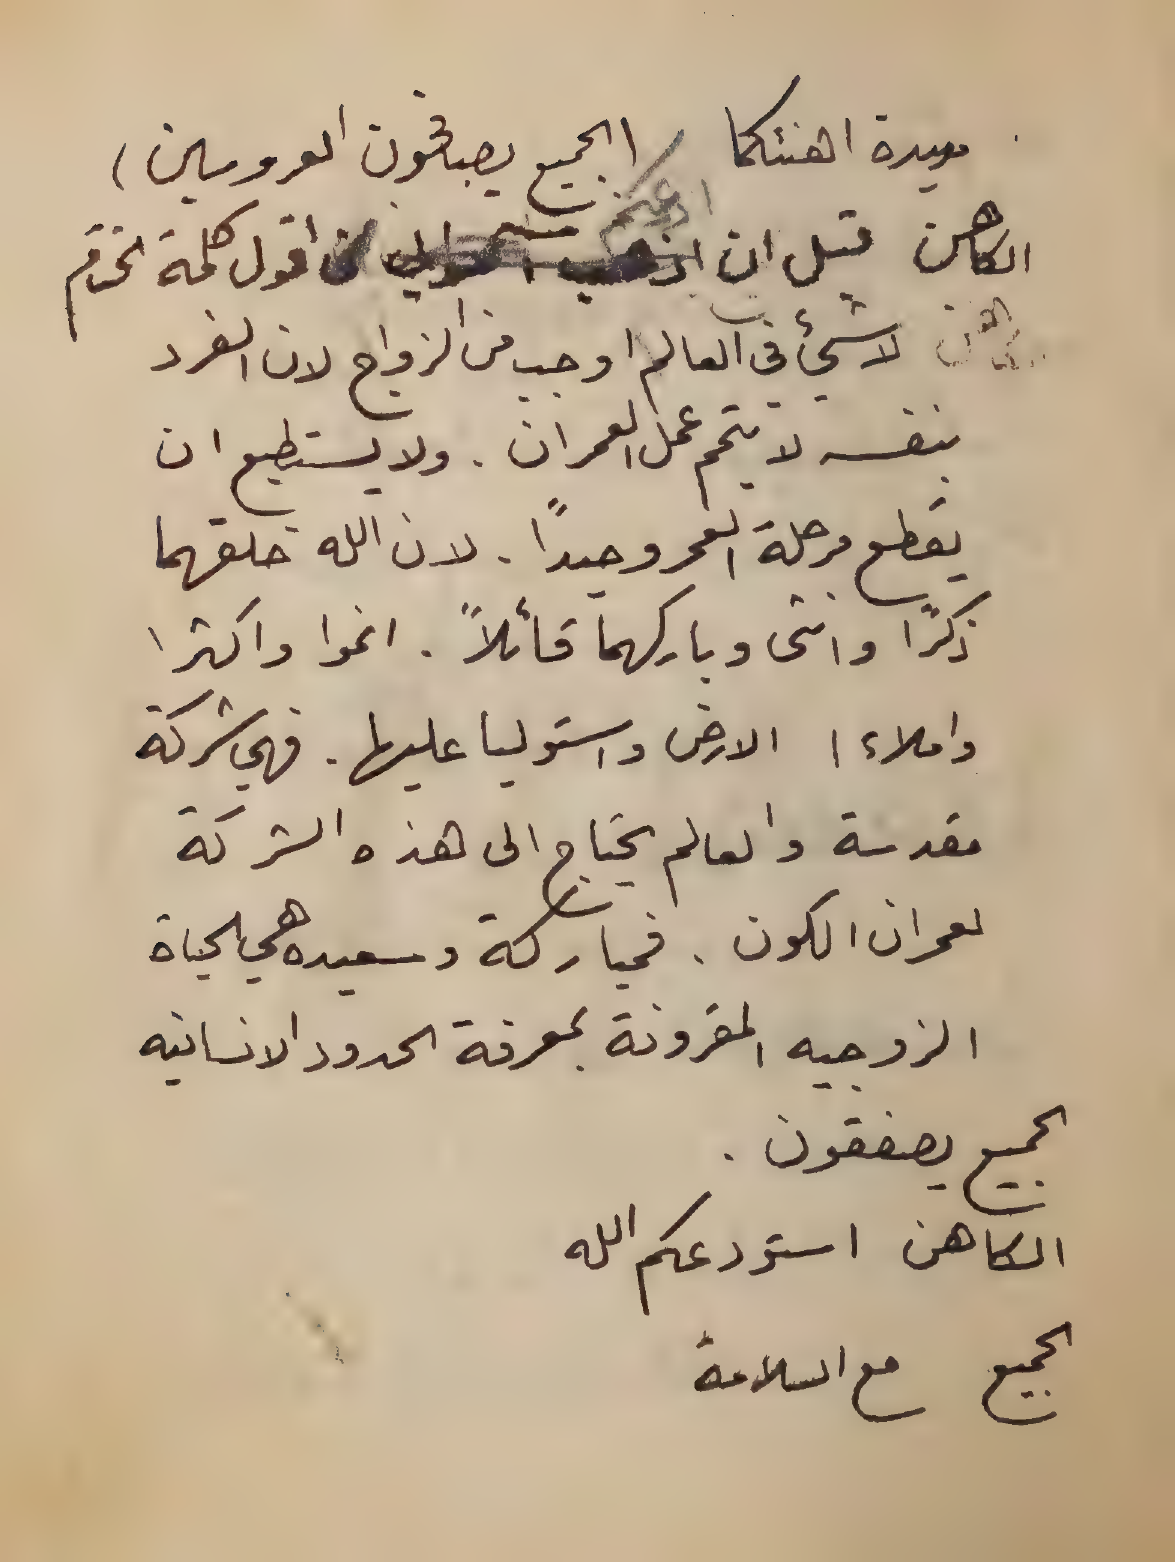 مريدة اهنئكما (الجميع يصافحون العروسين)
الكاهن قبل ان اقول كلمة اخرى
لاشيئ في العالم اوجب من الزواج لان الفرد
بنفسه لا يتمم عمل العمران . ولا يستطيع ان
يقطع مرحلة العمر وحيدًا . لان الله خلقهما
ذكرًا وانثى وباركهما قائلاً . انموا واكثرا
واملاءا الارض واستوليا عليها . فهي شركة
مقدسة والعالم يحتاج الى هذه الشركة
لعمران الكون . فمباركة وسعيده هي الحياة
الزوجيه المقرونة بمعرفة الحدود الانسانيه
الجميع يصفقون .
الكاهن استودعكم الله
الجميع مع السلامة